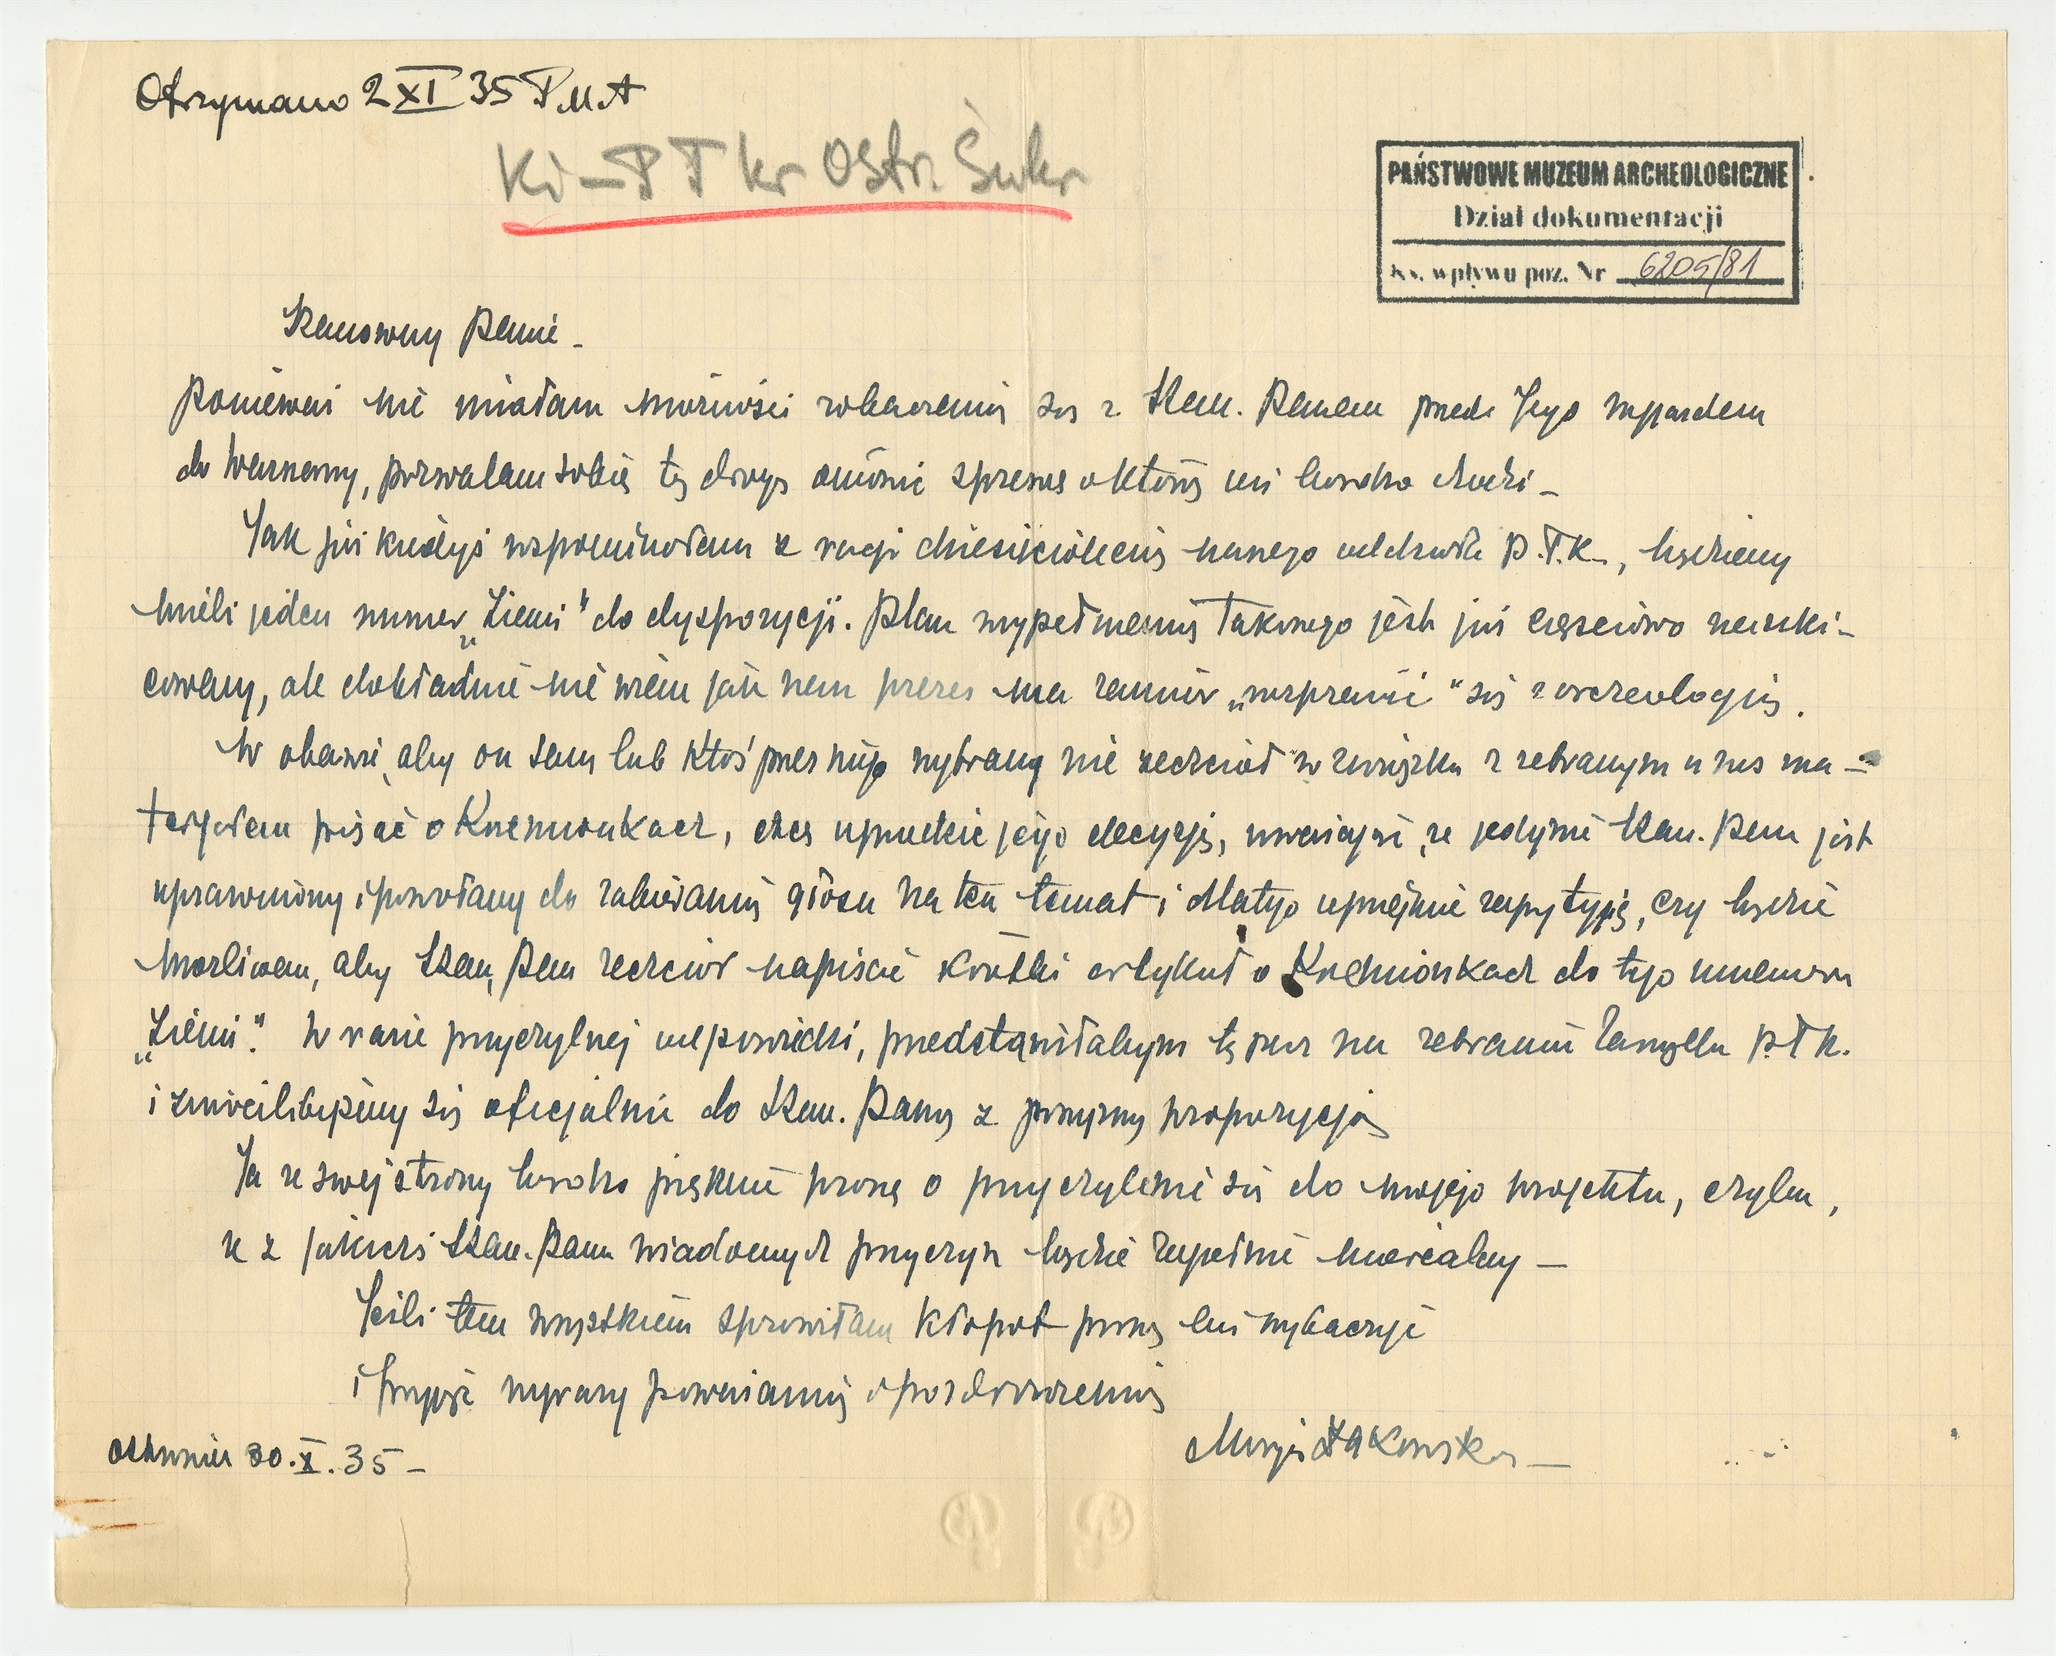 Otrzymano 2 XI 35 P.M.A
Ki-PTKr Ostr. Świkr
PAŃSTWOWE MUZEUM ARCHEOLOGICZNE
Dział dokumentacji
Ks. wpływu poz. Nr 6205/81
Szanowny Panie –
Ponieważ nie miałam możności zobaczenia się z Szan. Panem przed Jego wyjazdem
do Warszawy, pozwalam sobie tą drogą omówić sprawę o którą mi bardzo chodzi –
Jak już kiedyś wspominałam z racji dziesięciolecia naszego oddziału P.T.K., będziemy
mieli jeden numer „Ziemi" do dyspozycji. Plan wypełnienia takowego jest już częściowo naszki-
cowany, ale dokładnie nie wiem jak nam prezes ma zamiar „rozprawić" się z archeologią.
W obawie, aby on sam lub ktoś przez niego wybrany nie zechciał w związku z zebranym u nas ma-
terjałem pisać o Krzemionkach, chcę uprzedzić jego decyzję, uważając, że jedynie Szan. Pan jest
uprawniony i powołany do zabierania głosu na ten temat i dlatego uprzejmie zapytuję, czy będzie
możliwem, aby Szan. Pan zechciał napisać krótki artykuł o Krzemionkach do tego numeru
„Ziemi". W razie przychylnej odpowiedzi, przedstawiłabym tę rzecz na zebraniu Zarządu P.T.K.
i zwrócilibyśmy się oficjalnie do Szan. Pana z powyższą propozycją
Ja ze swej strony bardzo pięknie proszę o przychylenie się do mojego projektu, chyba,
że z jakichś Szan. Panu wiadomych przyczyn będzie zupełnie nierealny –
Jeśli tem wszystkiem sprawiłam kłopot proszę mi wybaczyć
i przyjąć wyrazy poważania i pozdrowienia
Marja Żakowska –
Ostrowiec 30.X.35 –